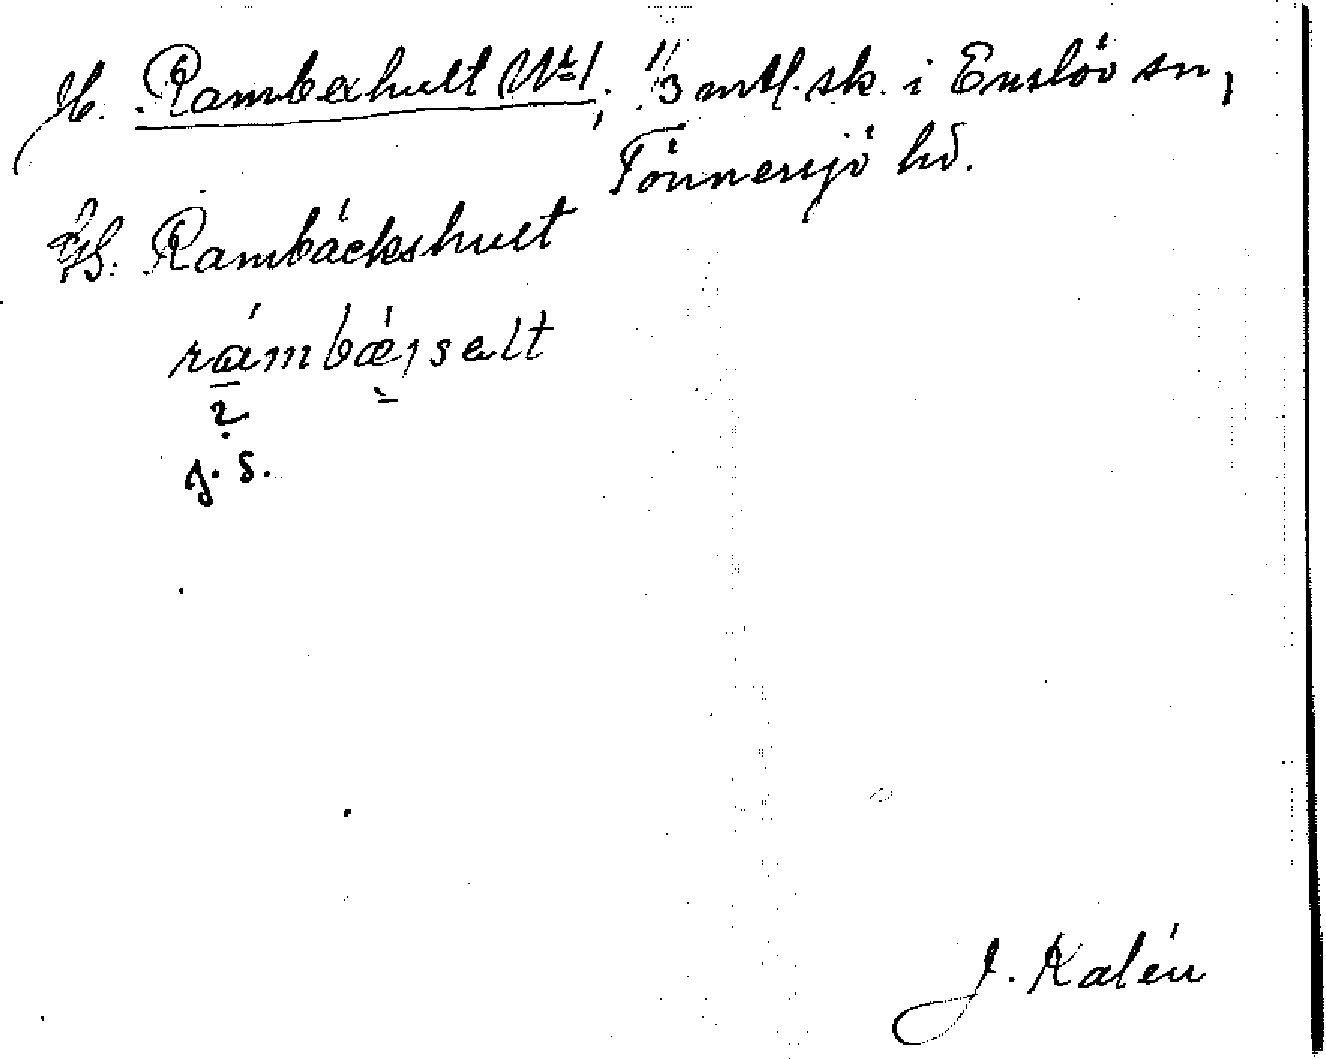 H. Rambexhult No 1, 1/3 mtl. sk. i Enslöv sn,
Tönnersjö hd.
Rambäckshult
rámbæ̀ɟsalt
?
J. S.
J. Kalén